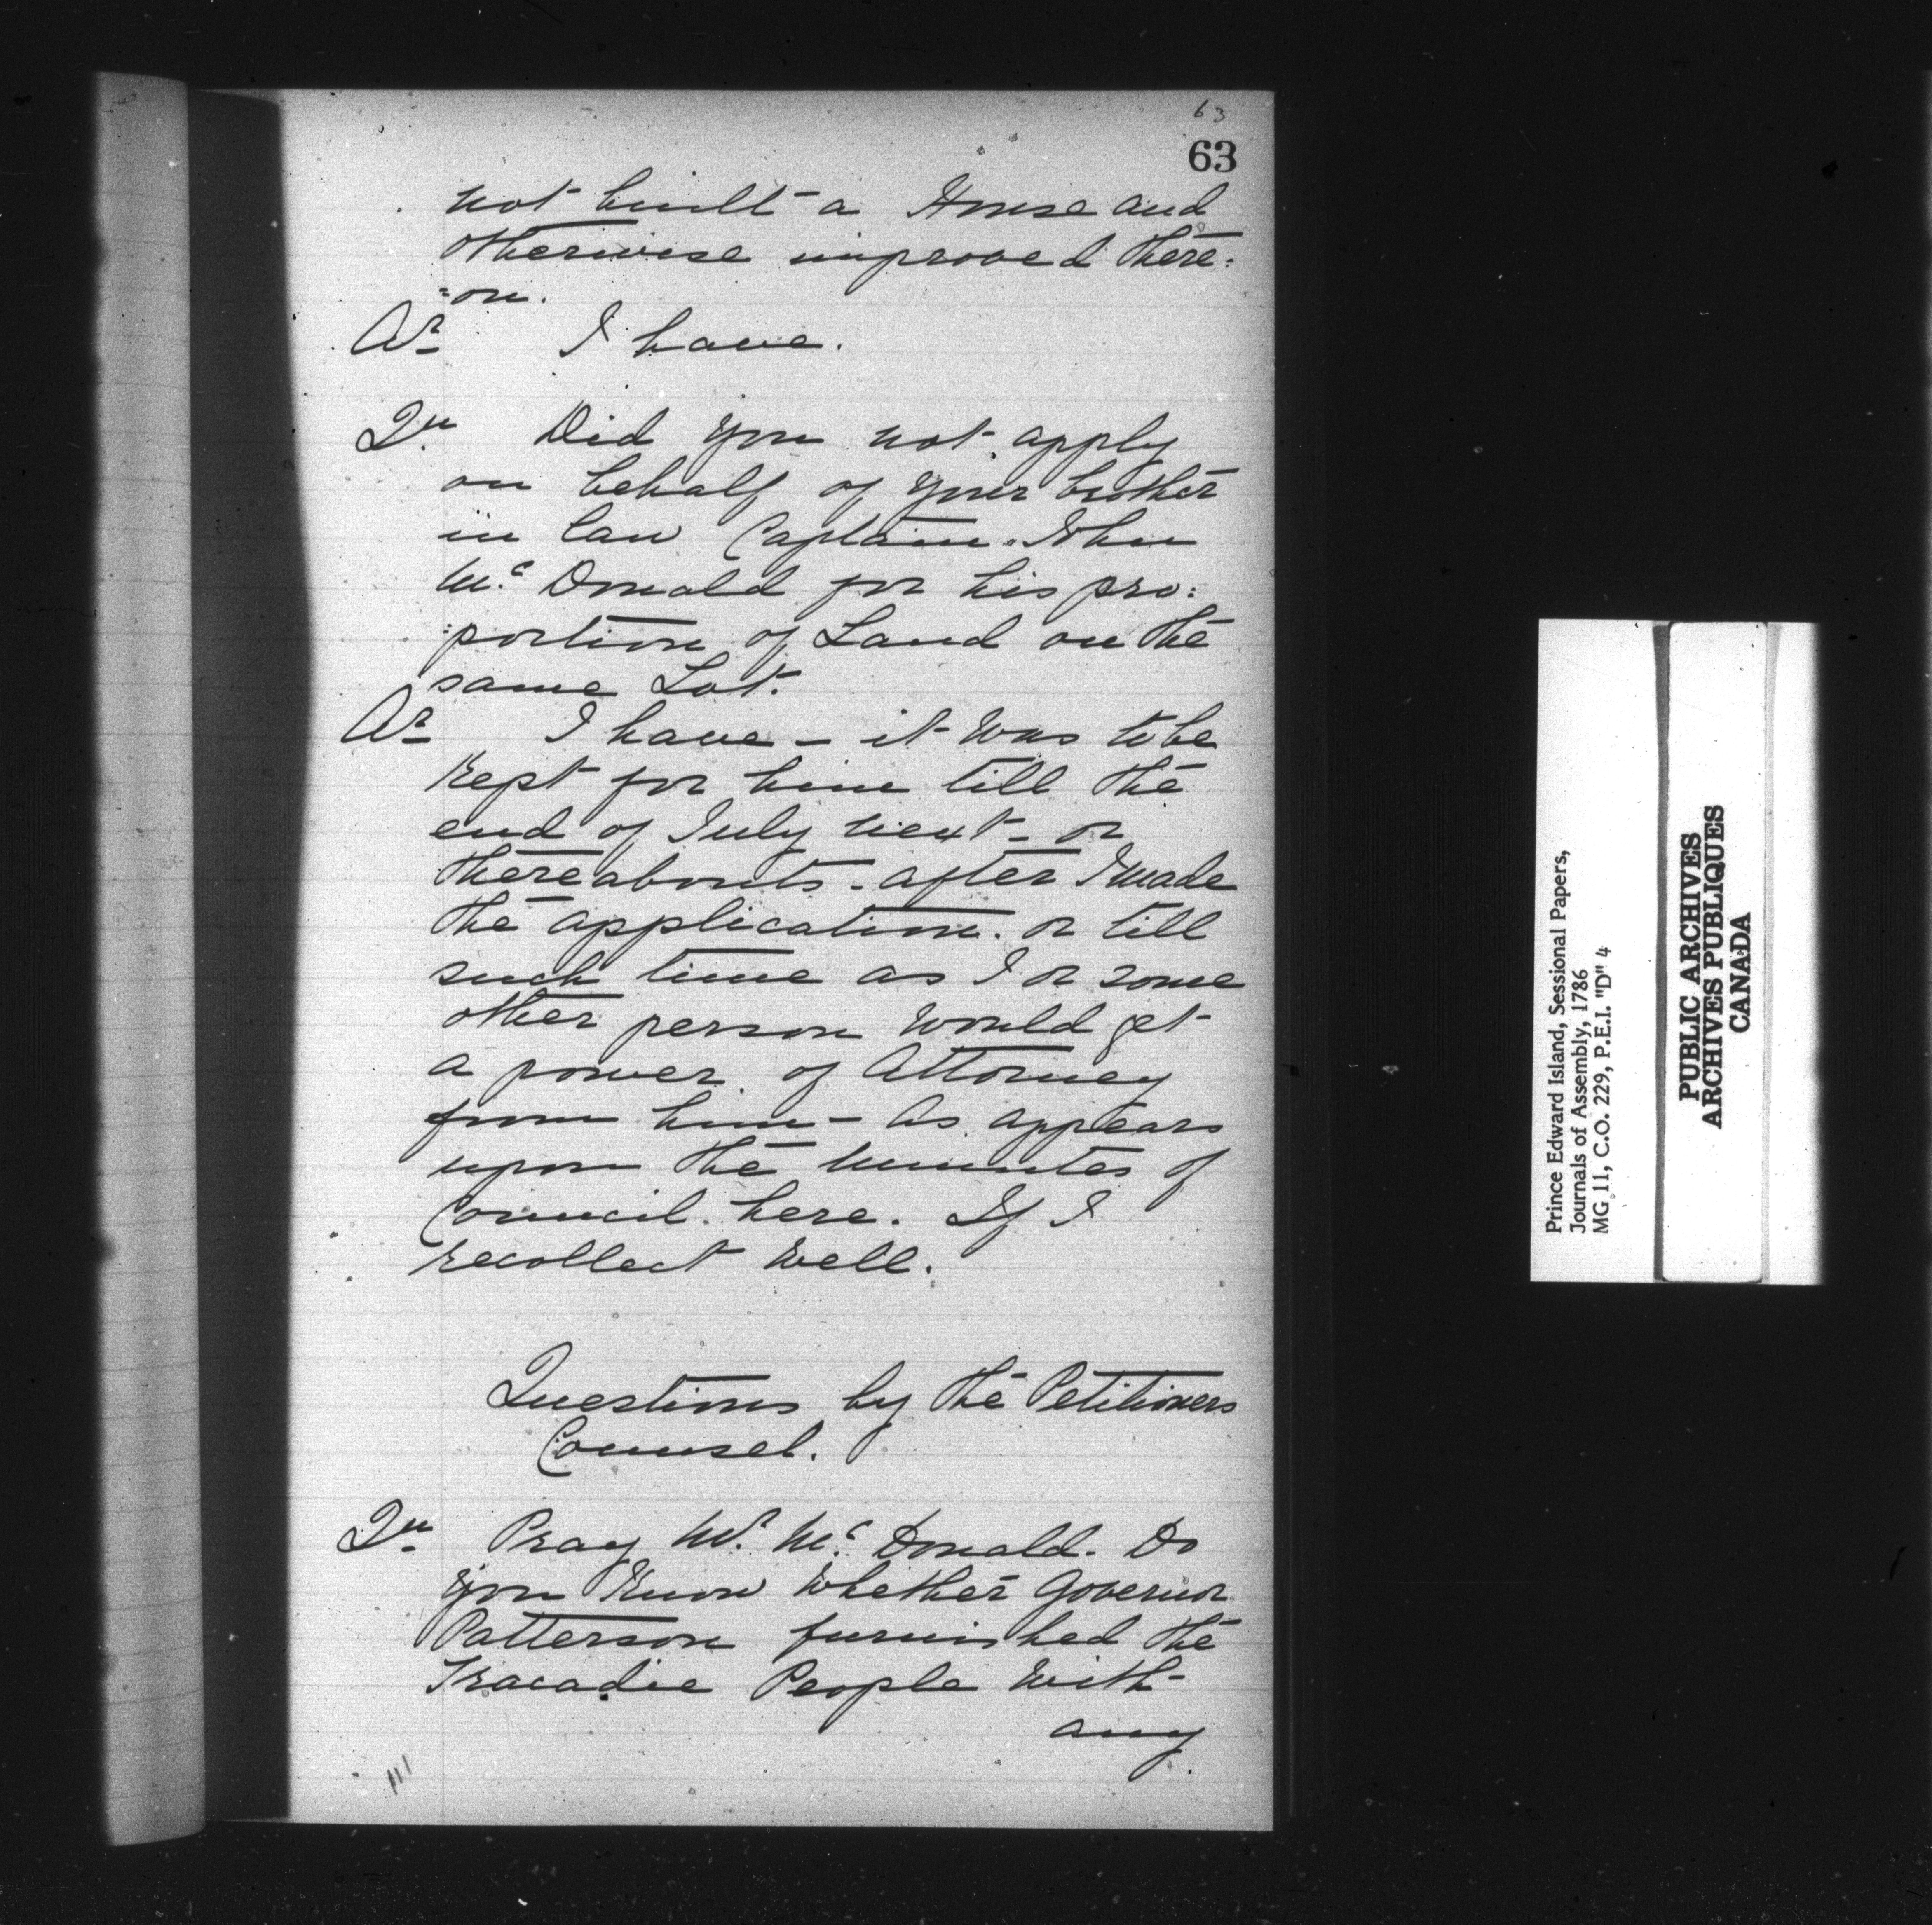 63
63
not built a House and
otherwise improved there:
:on.
Ar I have.
Qu. Did you not apply
on behalf of your brother
in law Captain John
Mc. Donald for his pro:
:portion of Land on the
same Lot.
Ar I have - it was to be
kept for him till the
end of July next - or
thereabouts - after I made
the application. or till
such time as I or some
other person would get
a power of Attorney
from him - As appears
upon the minutes of
Council here. If I
recollect well.
Questions by the Petitioners
Counsel.
Qu. Pray Mr. Mc. Donald. Do
you know whether Governor
Patterson furnished the
Tracadie People with
any
Prince Edward Island, Sessional Papers,
Journals of Assembly, 1786
MG 11, C.O. 229, P.E.I. "D" 4
PUBLIC ARCHIVES
ARCHIVES PUBLIQUES
CANADA